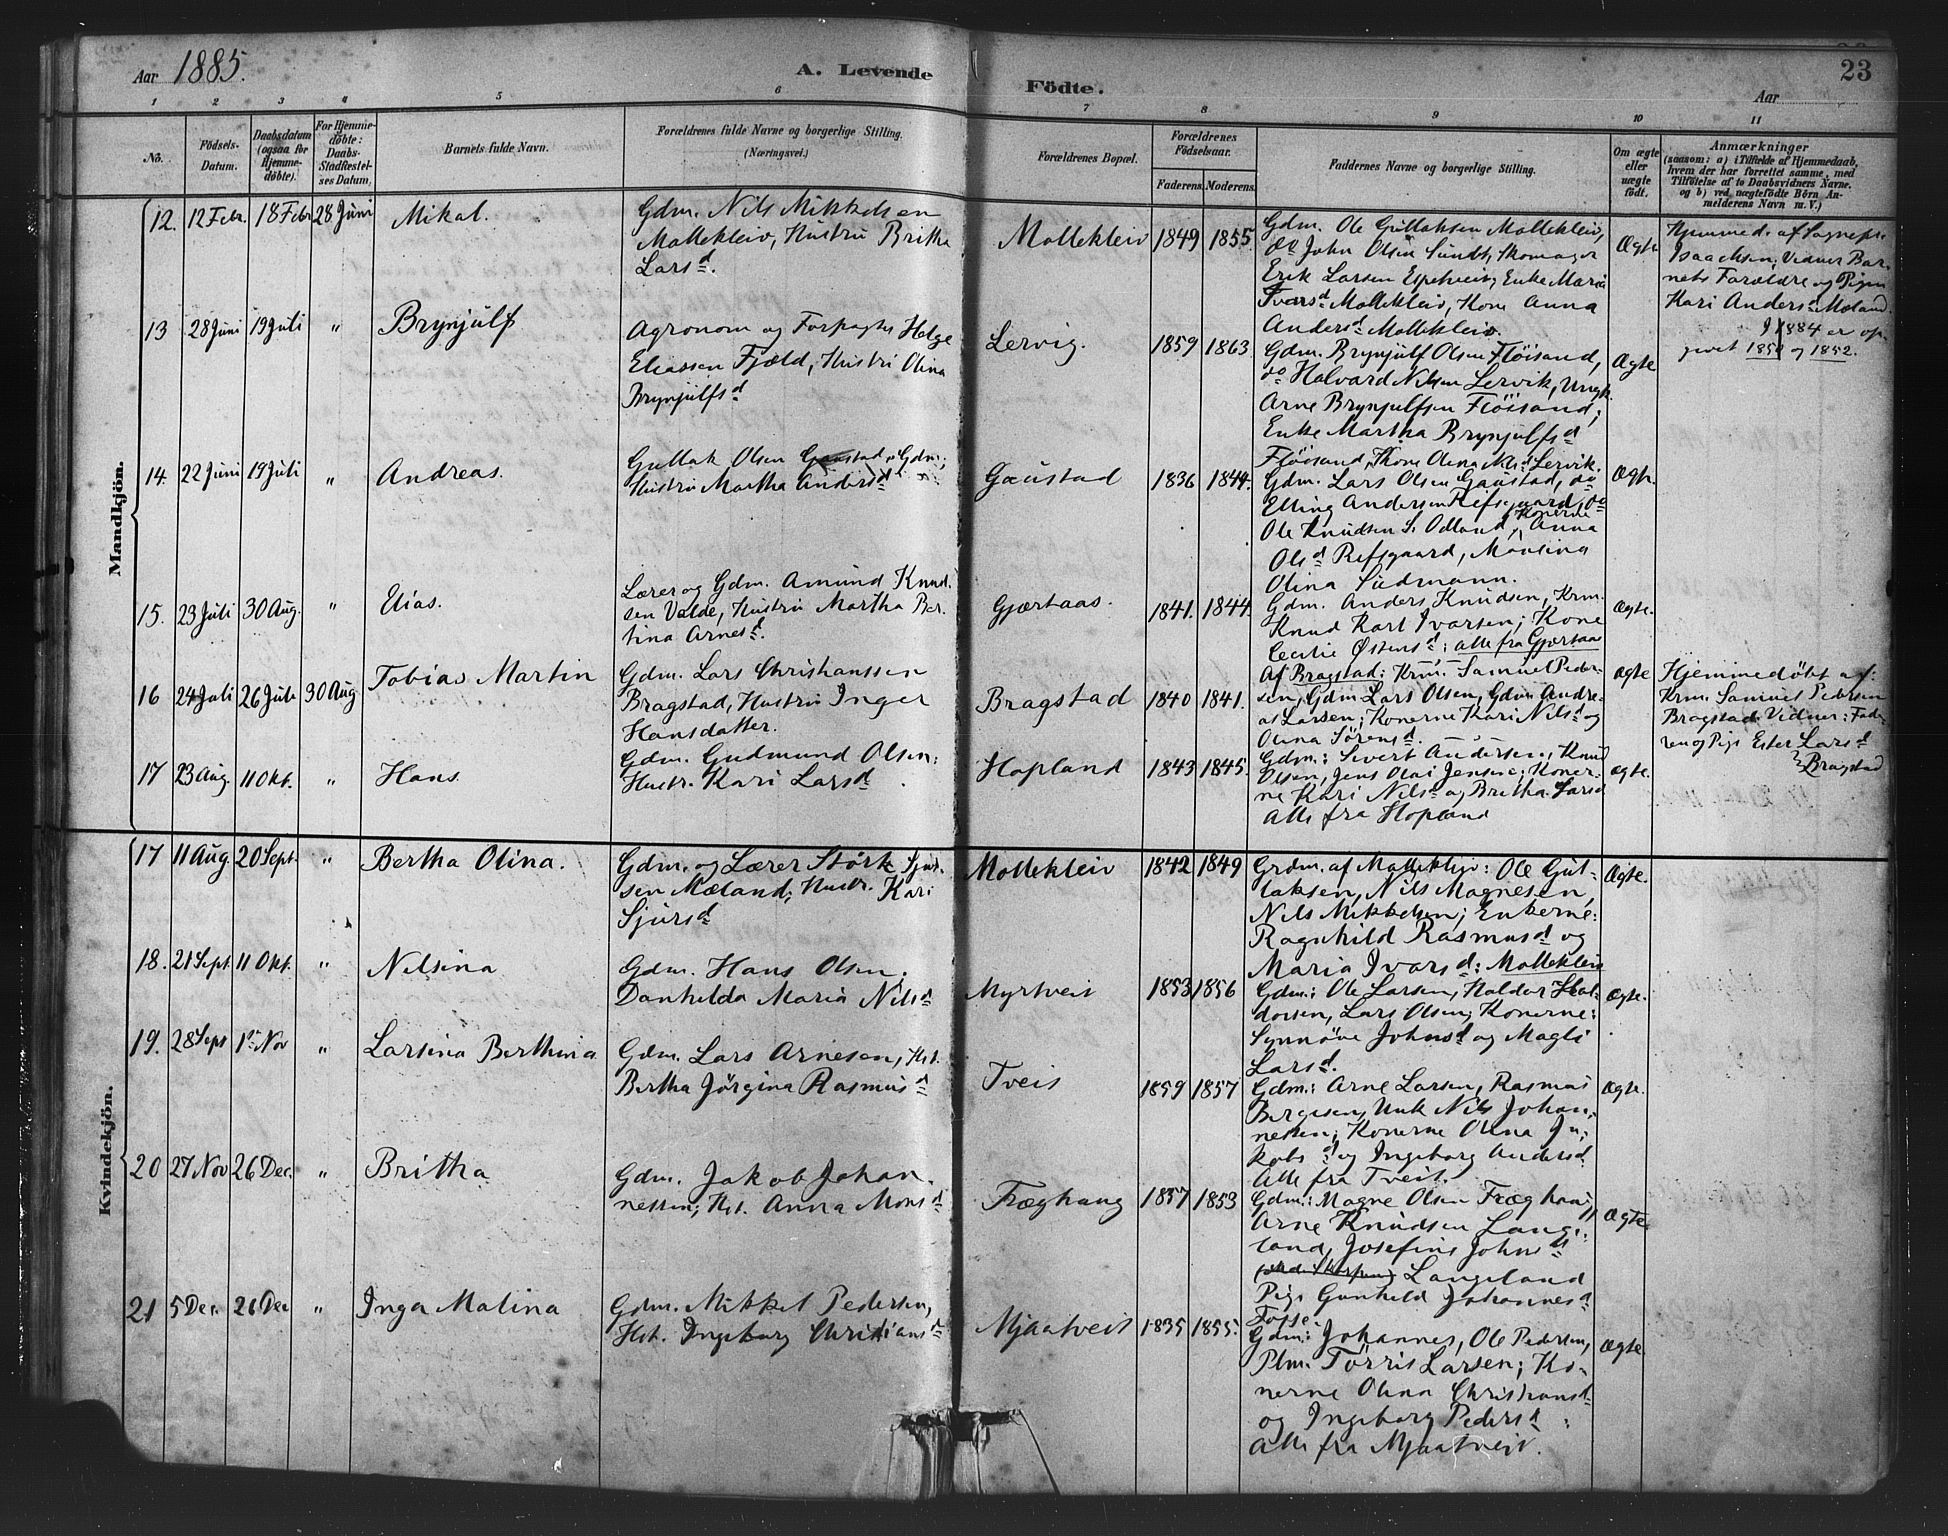 Aar 1885.
A. Levende
Födte.
23
Aar
1 2 3 4 5 6 7 8 9 10 11
No.
Födsels-
Datum.
Daabsdatum
(ogsaa for
Hjemme-
döbte).
For Hjemme-
döbte:
Daabs-
Stadfæstel-
ses Datum.
Barnets fulde Navn.
Forældrenes fulde Navne og borgerlige Stilling.
(Næringsvei.)
Forældrenes Bopæl.
Forældrenes
Födselsaar.
Faderens. Moderens.
Faddernes Navne og borgerlige Stilling.
Om ægte
eller
uægte
födt.
Anmærkninger
(saasom: a) i Tilfælde af Hjemmedaab,
hvem der har forrettet samme, med
Tilföielse af to Daabsvidners Navne,
og b) ved uægtefödte Börn An-
melderens Navn m. V.)
Mandkjön.
12. 12 Febr. 18 Febr 28 Juni Mikal.
Gdm. Nils Mikkelsen
Mollekleiv, Hustru Britha
Larsd.
Mollekleiv 1849 1855.
Gdm. Ole Gullaksen Mollekleiv,
do John Olsen Sundt, Skomager
Erik Larsen Espetveit; Enke Maria
Ivarsd Mollekleiv, Kone Anna
Andersd Mollekleiv.
Ægte
Hjemmed. af Sognepr.
Isaachsen; Vidner Bar-
nets Forældre og Pigen
Kari Andersd Moland
13 28 Juni 19 Juli " Brynjulf
Agronom og Forpagter Helge
Eliassen Fjæld, Hustru Olina
Brynjulfsd
Lervig. 1859 1863
Gdm. Brynjulf Olsen Flöisand,
do Halvard Nilsen Lervik, Ungk.
Arne Brynjulfsen Flöisand;
Enke Martha Brynjulfsd
Flöisand, Kone Olina Nilsd Lervik.
Ægte
I 1884 er op-
givet 1851 og 1852.
14. 22 Juni 19 Juli " Andreas.
Gullak Olsen Gaustad, Gdm.,
Hustru Martha Andersd
Gaustad 1836 1844.
Gdm. Lars Olsen Gaustad, do
Elling Andersen Refsgaard, do
Ole Knudsen S. Odland, Konerne Anna
Olsd Refsgaard, Monsina
Olina Sudmann.
Ægte.
15. 23 Juli 30 Aug. " Elias.
Lærer og Gdm. Amund Knud-
sen Valde, Hustru Martha Ber-
tina Arnesd.
Gjertaas. 1841. 1844.
Gdm. Anders Knudsen, Krm.
Knud Karl Ivarsen; Kone
Cecilie Østensd; alle fra Gjertaas
Ægte.
16 24 Juli 26 Juli 30 Aug Tobias Martin
Gdm. Lars Christianssen
Bragstad, Hustru Inger
Hansdatter.
Bragstad 1840 1841.
Af Bragstad: Krm. Samuel Peder-
sen, Gdm. Lars Olsen, Gdm. Andre-
as Larsen; Konerne Kari Nilsd og
Olina Sørensd.
Ægte
Hjemmedöbt af:
Krm. Samuel Pedersen
Bragstad. Vidner: Fade-
ren og Pige Ester Larsd
Bragstad
17 23 Aug. 11 Okt. " Hans.
Gdm. Gudmund Olsen;
Hustr. Kari Larsd.
Hopland 1843 1845.
Gdm.: Sivert Andersen, Knud
Olsen, Jens Olai Jensen; Koner-
ne Kari Nilsd og Britha Larsd
Alle fra Hopland
ægte.
Kvindekjön.
17 11 Aug. 20 Sept. " Bertha Olina.
Gdm. og Lærer Størk Sjur-
sen Mæland; Hustr. Kari
Sjursd
Mollekleiv 1842 1849
Grdm. af Mollekleiv: Ole Gul-
laksen, Nils Magnesen,
Nils Mikkelsen; Enkerne:
Ragnhild Rasmusd og
Maria Ivarsd: Mollekleiv
Ægte.
18. 21 Sept. 11 Okt. " Nilsina
Gdm. Hans Olsen;
Danhilda Maria Nilsd
Myrtveit 1853 1856
Gdm.: Ole Larsen, Haldor Hal-
dorsen, Lars Olsen; Konerne:
Synnöve Johnsd og Magli
Larsd.
Ægte.
19. 28 Sept 1ste Nov " Larsina Berthina
Gdm. Lars Arnesen, Hst.
Bertha Jörgina Rasmusd
Tveit 1859 1857
Gdm.: Arne Larsen, Rasmus
Bergesen, Unk Nils Johan-
nessen; Konerne Olina Ja-
kobsd og Ingeborg Andersd.
Alle fra Tveit.
Ægte.
20 27 Nov 26 Dec. " Britha
Gdm. Jakob Johan-
nessen; Hst. Anna Monsd
Fræghaug 1857 1853
Gdm: Magne Olsen Fræghaug,
Arne Knudsen Lange-
land, Josefine Johnsd
Langeland
Pige Gunhild Johannesd
Fosse.
Ægte
21 5 Dec. 26 Dec " Inga Malina
Gdm. Mikkel Pedersen,
Hst. Ingeborg Christiansd
Mjaatveit 1835 1855.
Gdm: Johannes, Ole Pedersen,
Plm. Törris Larsen; Ko-
nerne Olina Christiansd
og Ingeborg Pedersd;
Alle fra Mjaatveit.
Ægte.